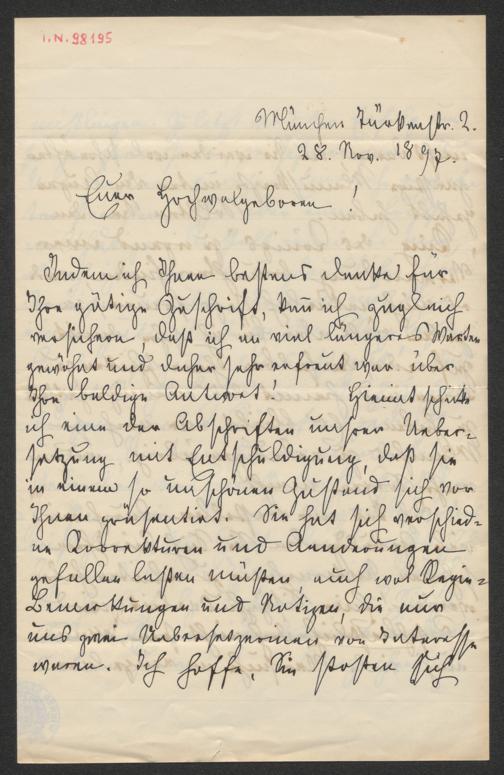 I.N. 98195
München Türkenstr. 2.
28. Nov. 1897.
Euer Hochwolgeboren!
Indem ich Ihnen bestens danke für
Ihre gütige Zuschrift, kann ich zugleich
versichern, daß ich an viel längeres Warten
gewöhnt und daher sehr erfreut war über
Ihre baldige Antwort! Hiemit schicke
ich eine der Abschriften unsrer Ueber-
setzung mit Entschuldigung, daß sie
in einem so unschönen Zustand sich vor
Ihnen präsentirt. Sie hat sich verschied-
ne Korrekturen und Aenderungen
gefallen laßen müßen auch wol Regie-
Bemerkungen und Notizen, die nur
uns zwei Uebersetzerinen von Interesse
waren. Ich hoffe, Sie stoßen sich